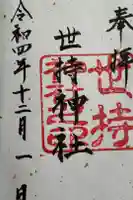 奉拝
世持
世持神社
令和四年十二月一日